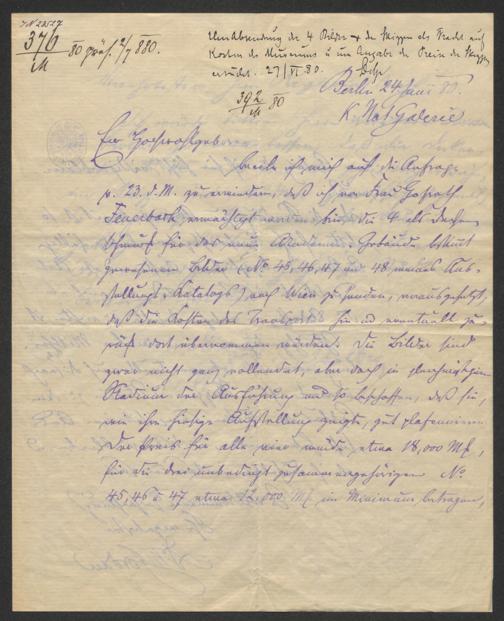 370
M
80 präs. 2/7 880.
Um Absendung der 4 Bilder & der Skizzen als Fracht auf
Kosten des Museums u um Angabe der Preise der Skizzen
ersucht. 27/VI 80.
392
M 80
Berlin 24 Juni 80.
K. Nat Galerie
Ew Hochwohlgeboren
beeile ich mich auf die Anfrage
p. 23. d. M. zu erwiedern, daß ich von Frau Hofrath
Feuerbach ermächtigt worden bin, die 4 als Decken
schmuck für das neue Akademie-Gebäude bestimt
gewesenen Bilder (No. 45, 46, 47 und 48 unseres Aus-
stellungs-Katalogs) nach Wien zu senden, vorausgesetzt,
daß die Kosten des Transports hin und eventuell zu-
rück dort übernommen würden. Die Bilder sind
zwar nicht ganz vollendet, aber doch in gleichmäßigem
Stadium der Ausführung und so beschaffen, daß sie,
wie ihre hiesige Aufstellung zeigte, gut
Der Preis für alle vier würde etwa 18,000 Mk,
für die drei unbedingt zusammengehörigen No.
45, 46 u 47 etwa 12,000 Mk im Minimum betragen,